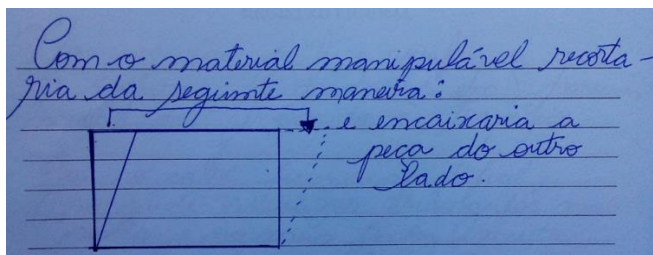 Com o material manipulável recorta-
ria da seguinte maneira:
e encaixaria a
peça do outro
lado.